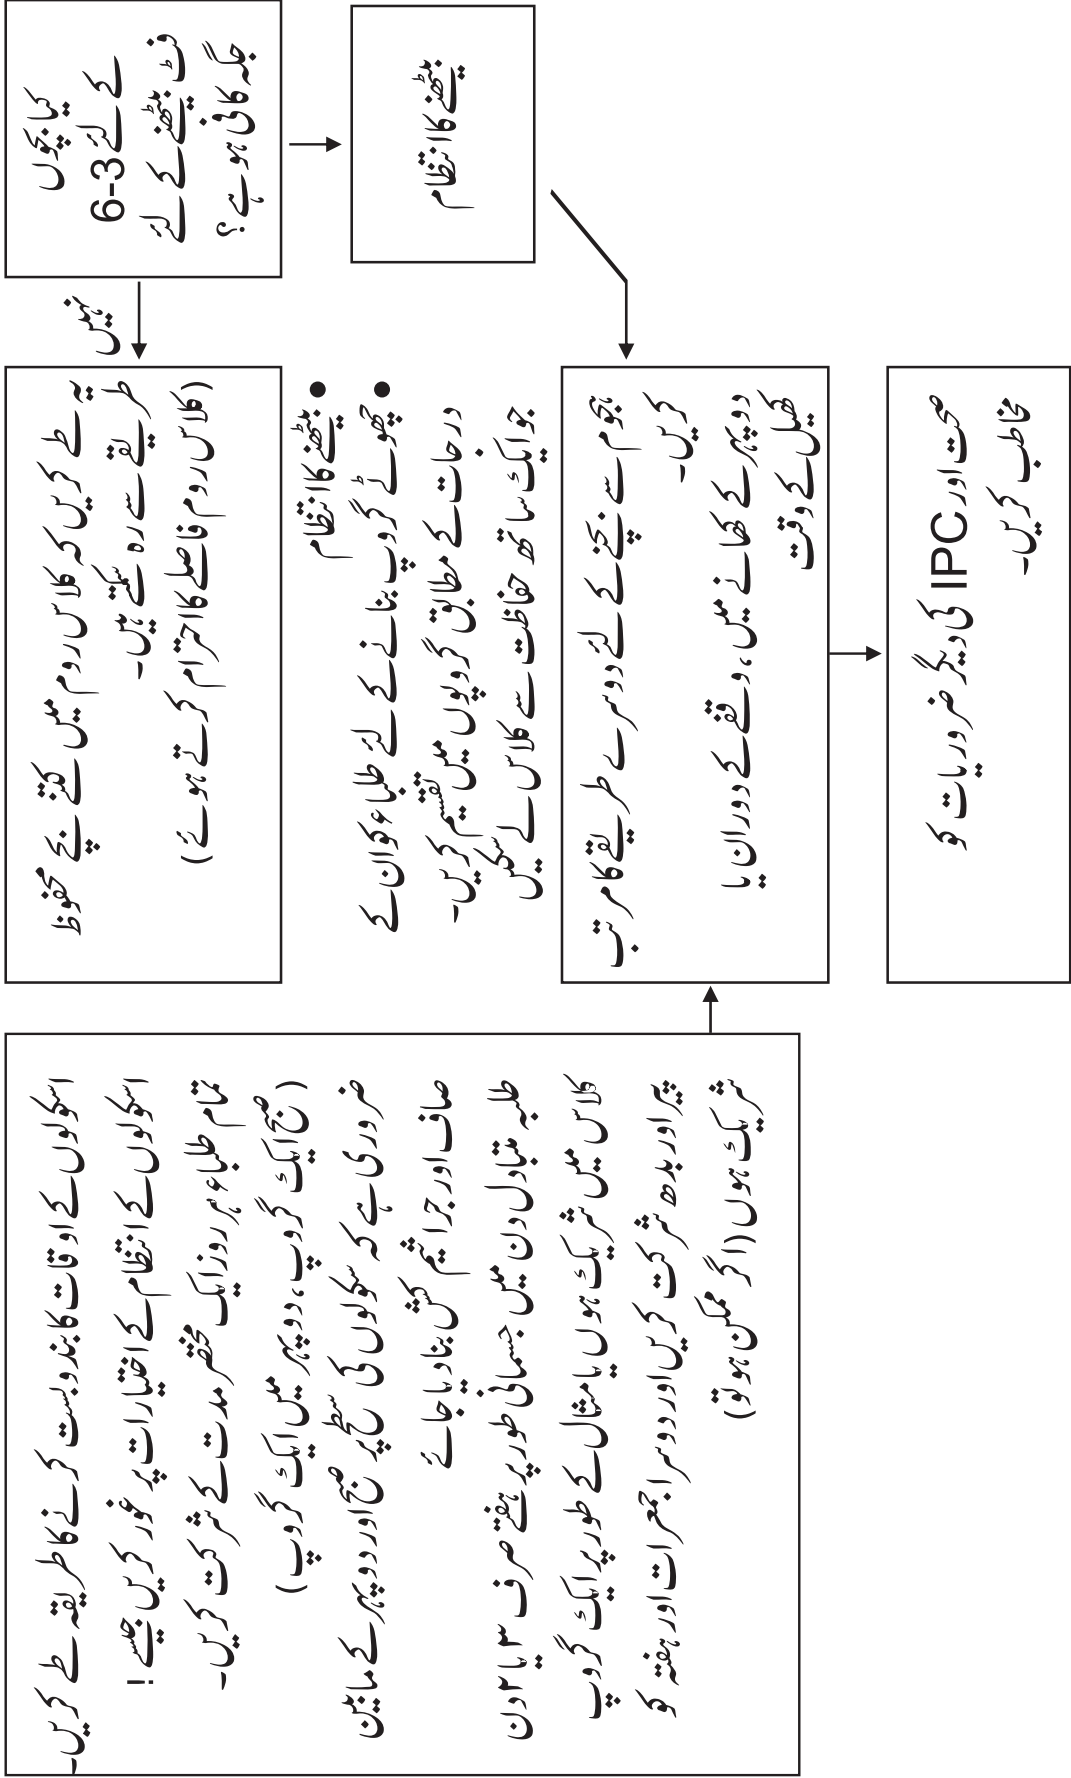 کیا بچوں
کے لئے 6-3
فٹ بیٹھنے کے لئے
جگہ کافی ہو ہے؟
نہیں
بیٹھنے کا انتظام
یہ طے کریں کہ کلاس روم میں کتنے بچے محفوظ
طریقے سے رہ سکتے ہیں۔
(کلاس روم فاصلے کا احترام کرتے ہوئے)
● بیٹھنے کا انتظام
● چھوٹے گروپ بنانے کے لئے طلباء کو ان کے
درجات کے مطابق گروپوں میں تقسیم کریں۔
جو ایک ساتھ حفاظت سے کلاس لے سکیں
ہجوم سے بچنے کے لئے دوسرے طریقے کا مرتب
کریں۔
دوپہر کے کھانے میں، وقفے کے دوران یا
کھیل کے وقت
صحت اور IPC کی دیگر ضروریات کو
مخاطب کریں۔
اسکولوں کے اوقات کا بندوبست کرنے کا طریقہ طے کریں۔
اسکولوں کے انتظام کے اختیارات پر غور کریں جیسے !
تمام طلباء ہر روز ایک مختصر مدت کے شرکت کریں۔
(صبح ایک گروپ، دوپہر میں ایک گروپ)
ضروری ہے کہ سکولوں کی سطح پر صبح اور دوپہر کے مابین
صاف اور جراثیم کش بنا دیا جائے
طلبہ متبادل دن میں جسمانی طور پر ہفتے صرف ۳ یا ۲ دن
کلاس میں شریک ہوں یا مثال کے طور پر ایک گروپ
پیر اور بدھ شرکت کریں اور دوسرا جمعرات اور ہفتہ کو
شریک ہوں (اگر ممکن ہو تو)